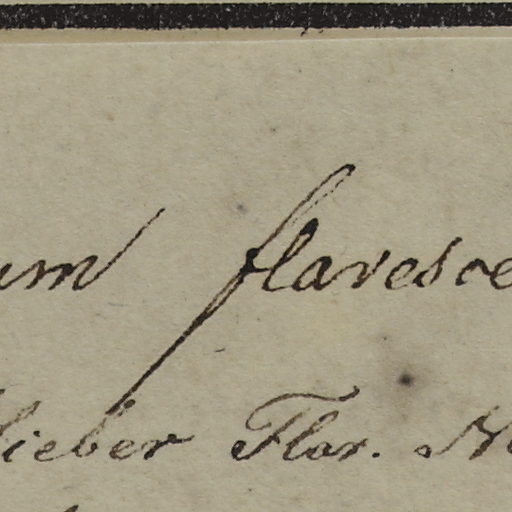 um flavesce
Sieber Flor. N